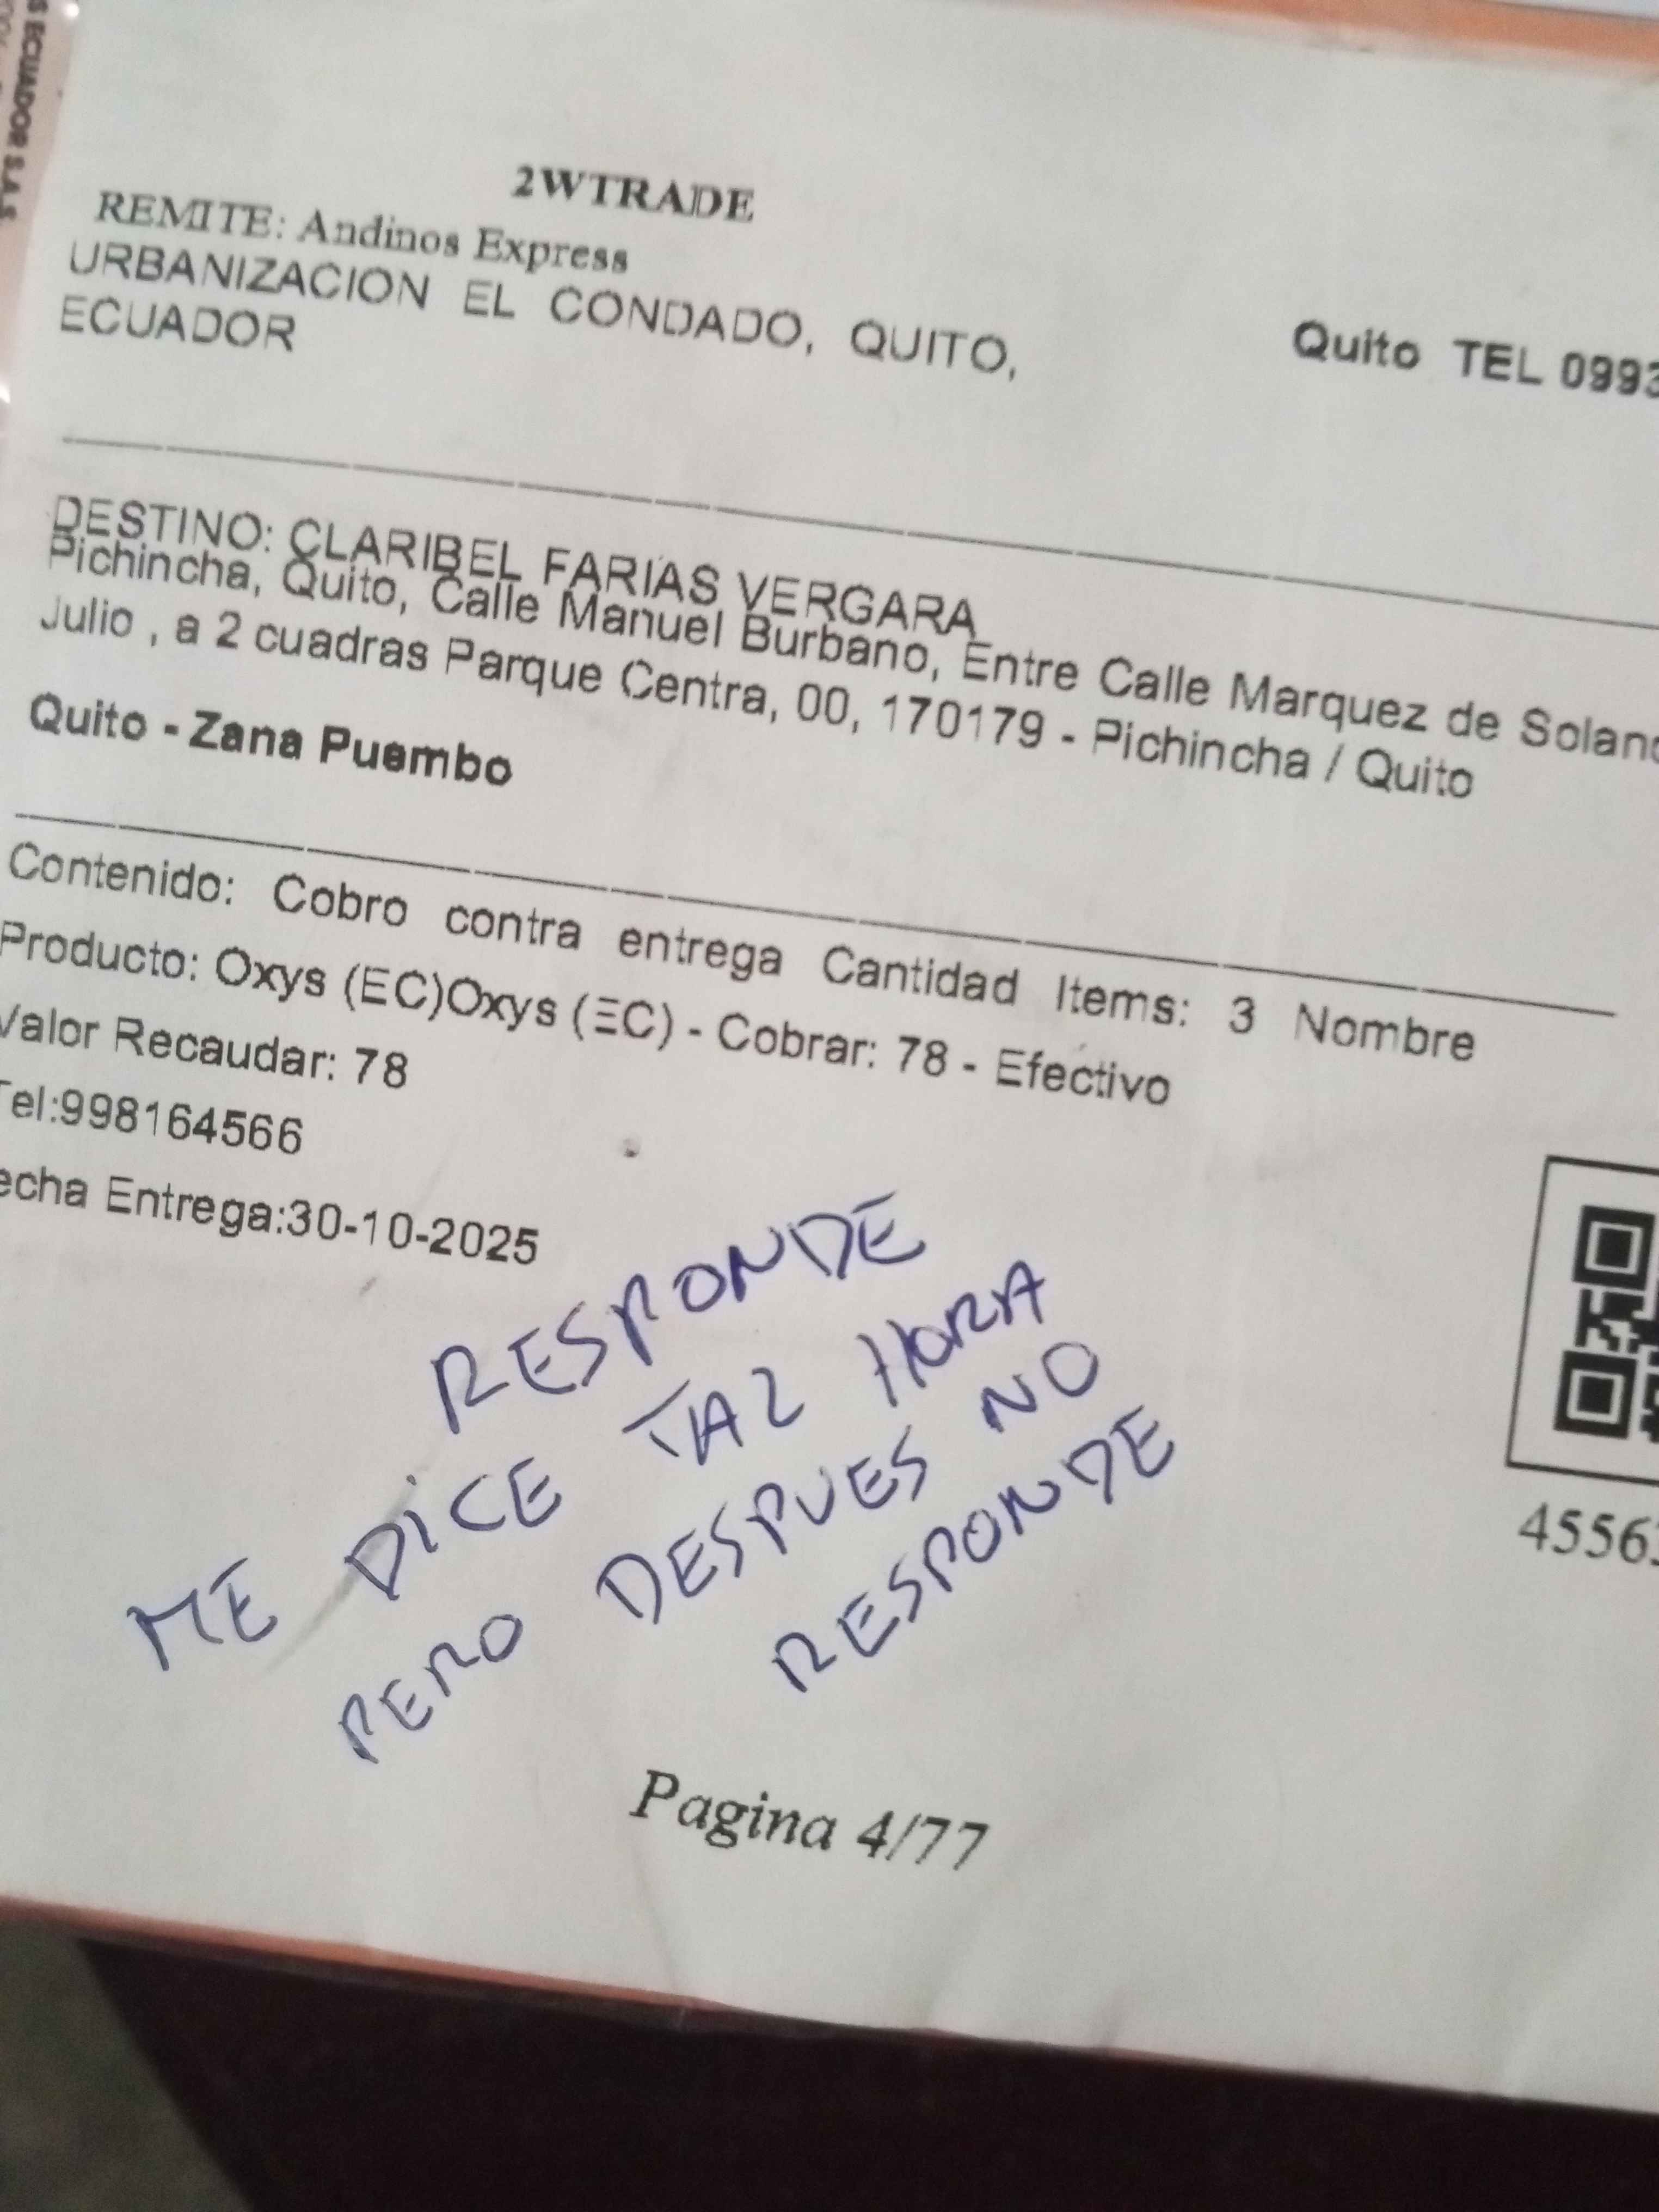 S ECUADOR S.A.S
2WTRADE
REMITE: Andinos Express
URBANIZACION EL CONDADO, QUITO,
ECUADOR
Quito TEL 0993
DESTINO: CLARIBEL FARIAS VERGARA
Pichincha, Quito, Calle Manuel Burbano, Entre Calle Marquez de Solano
Julio , a 2 cuadras Parque Centra, 00, 170179 - Pichincha / Quito
Quito - Zana Puembo
Contenido: Cobro contra entrega Cantidad Items: 3 Nombre
Producto: Oxys (EC)Oxys (EC) - Cobrar: 78 - Efectivo
Valor Recaudar: 78
Tel:998164566
echa Entrega:30-10-2025
RESPONDE
ME DICE TAL HORA
PERO DESPUES NO
RESPONDE
4556
Pagina 4/77